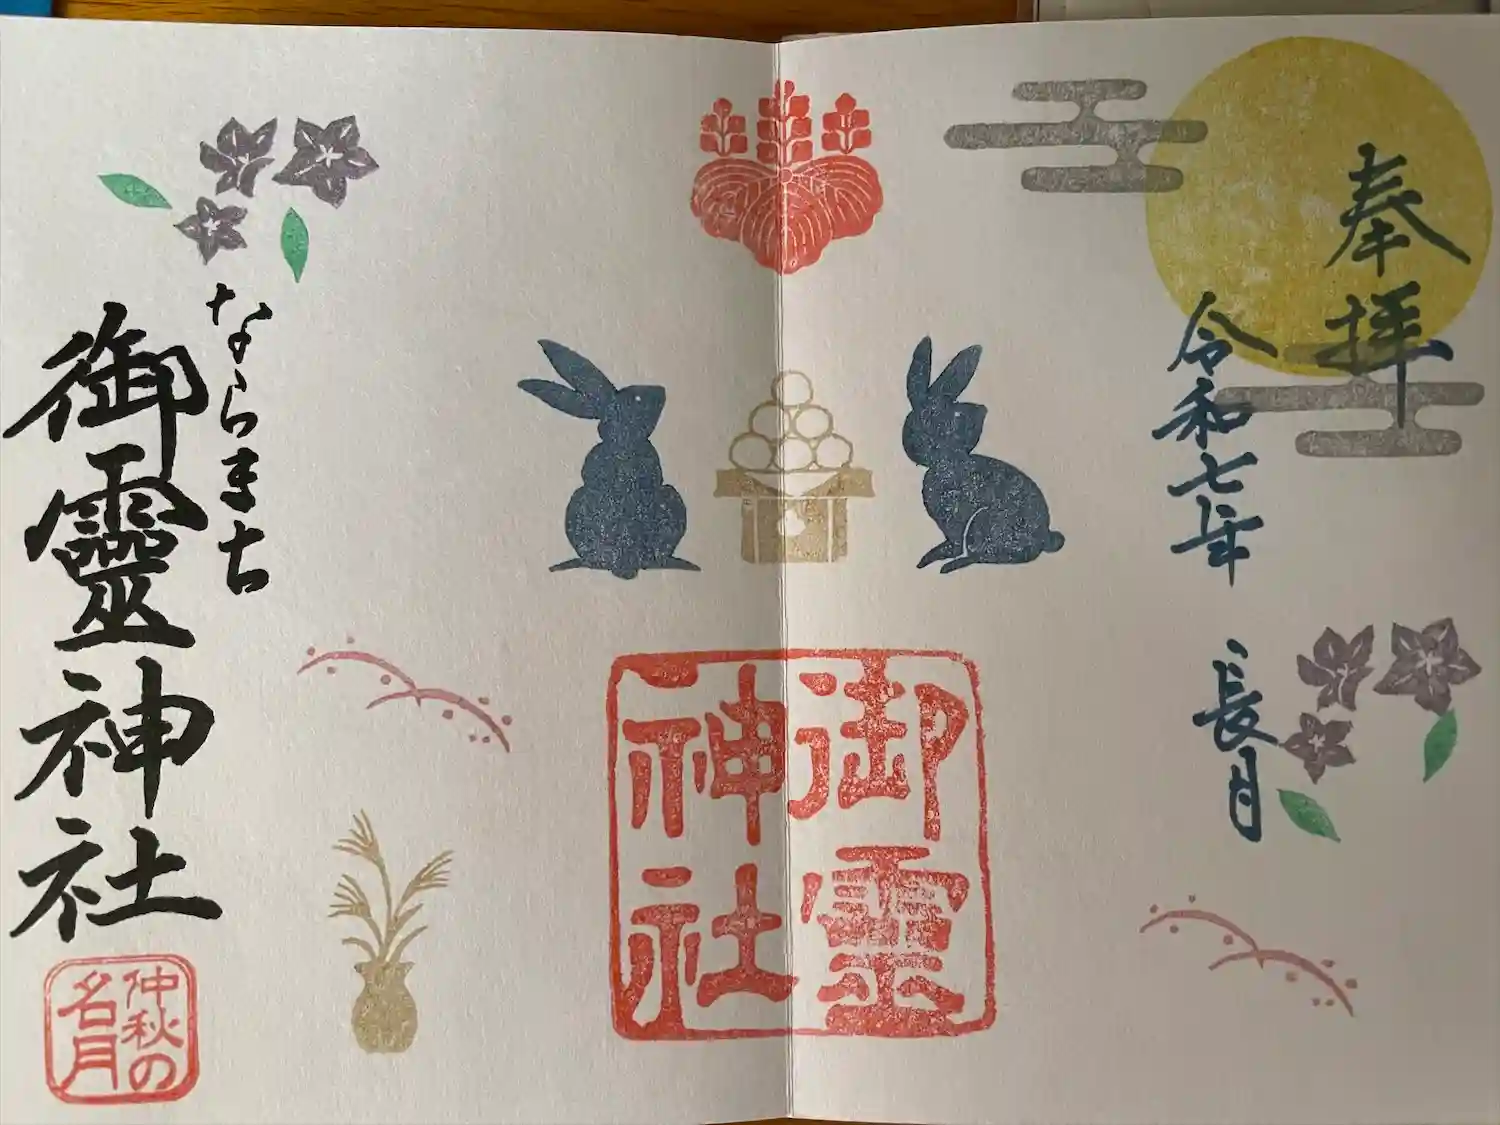 奉拝
令和七年 長月
御靈
神社
ならまち
御靈神社
仲秋の
名月